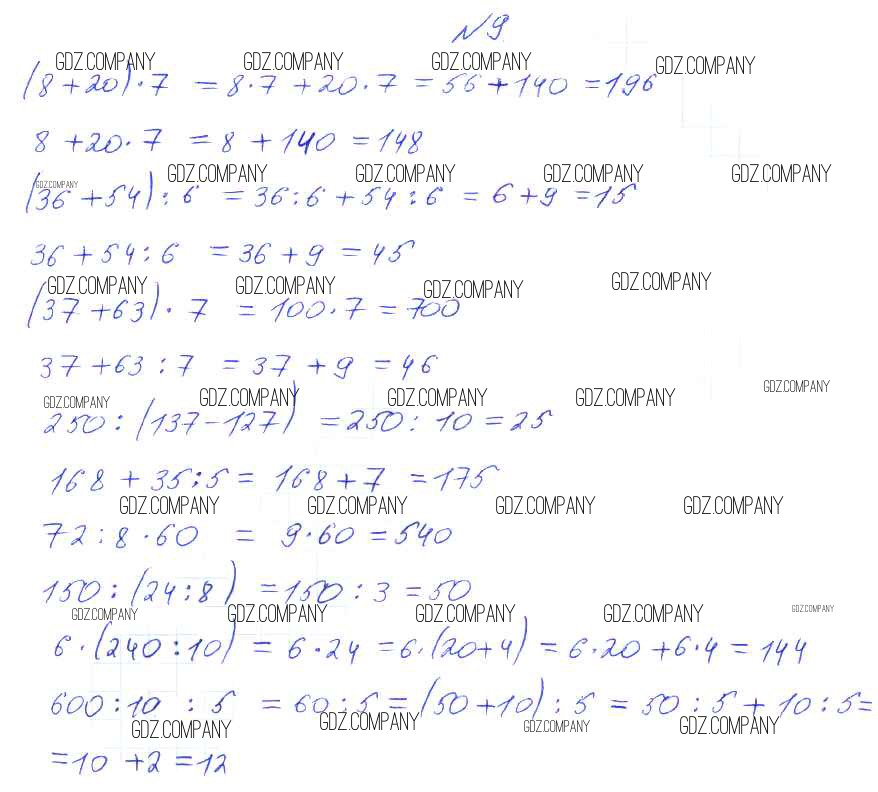 №9
GDZ.COMPANY GDZ.COMPANY GDZ.COMPANY GDZ.COMPANY
(8+20)·7 = 8·7 + 20·7 = 56 + 140 = 196
8 + 20·7 = 8 + 140 = 148
GDZ.COMPANY GDZ.COMPANY GDZ.COMPANY GDZ.COMPANY GDZ.COMPANY
(36 + 54) : 6 = 36 : 6 + 54 : 6 = 6 + 9 = 15
36 + 54 : 6 = 36 + 9 = 45
GDZ.COMPANY GDZ.COMPANY GDZ.COMPANY GDZ.COMPANY
(37 + 63) · 7 = 100 · 7 = 700
37 + 63 : 7 = 37 + 9 = 46
GDZ.COMPANY GDZ.COMPANY GDZ.COMPANY GDZ.COMPANY GDZ.COMPANY
250 : (137 - 127) = 250 : 10 = 25
168 + 35 : 5 = 168 + 7 = 175
GDZ.COMPANY GDZ.COMPANY GDZ.COMPANY GDZ.COMPANY
72 : 8 · 60 = 9 · 60 = 540
150 : (24 : 8) = 150 : 3 = 50
GDZ.COMPANY GDZ.COMPANY GDZ.COMPANY GDZ.COMPANY GDZ.COMPANY
6 · (240 : 10) = 6 · 24 = 6 · (20 + 4) = 6 · 20 + 6 · 4 = 144
600 : 10 : 5 = 60 : 5 = (50 + 10) : 5 = 50 : 5 + 10 : 5 =
GDZ.COMPANY GDZ.COMPANY GDZ.COMPANY GDZ.COMPANY
= 10 + 2 = 12